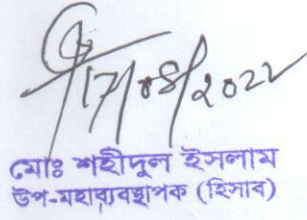 17/08/2022
মোঃ শহীদুল ইসলাম
উপ-মহাব্যবস্থাপক (হিসাব)